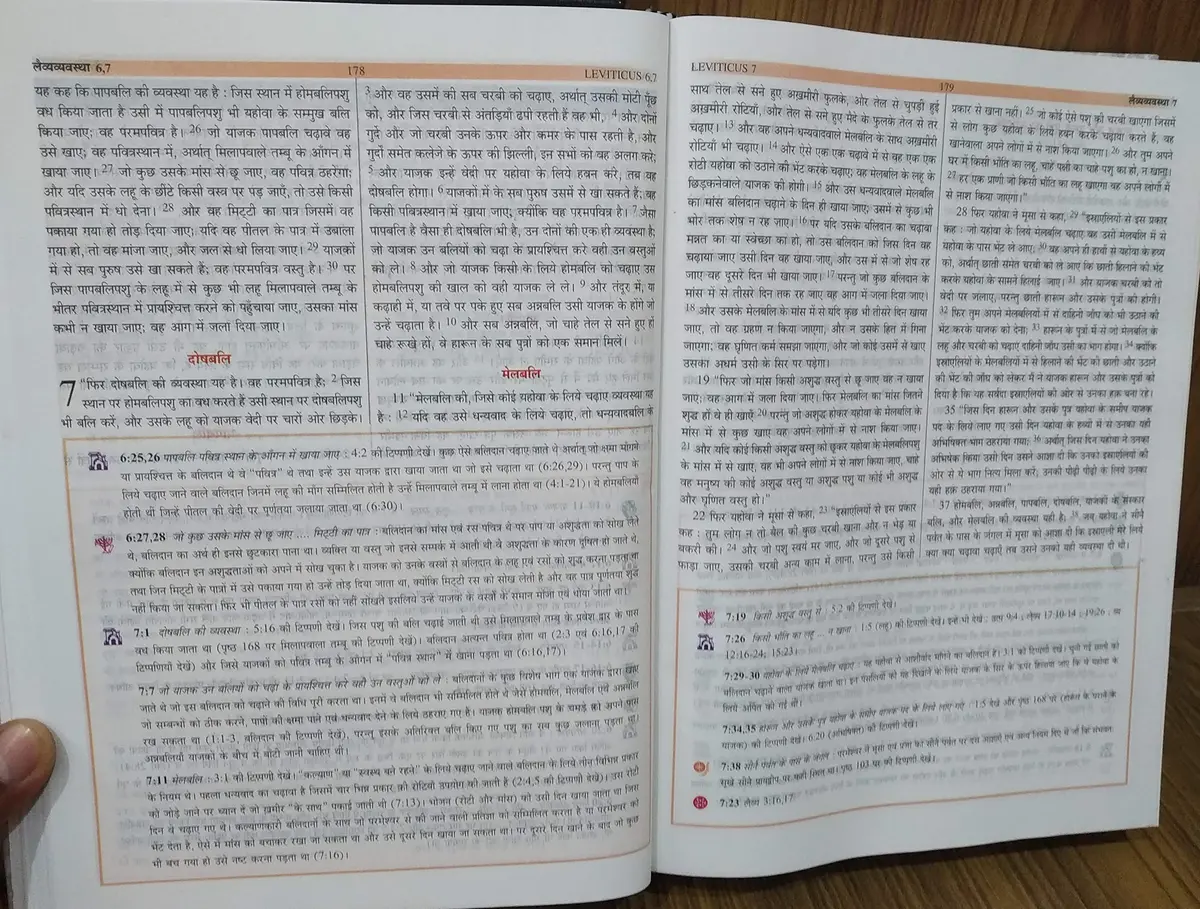 लैव्यव्यवस्था 6,7
178
LEVITICUS 6,7
यह कह कि पापबलि की व्यवस्था यह है : जिस स्थान में होमबलिपशु
वध किया जाता है उसी में पापबलिपशु भी यहोवा के सम्मुख बलि
किया जाए; वह परमपवित्र है। 26 जो याजक पापबलि चढ़ावे वह
उसे खाए; वह पवित्रस्थान में, अर्थात् मिलापवाले तम्बू के आँगन में
खाया जाए। 27 जो कुछ उसके मांस से छू जाए, वह पवित्र ठहरेगा;
और यदि उसके लहू के छींटे किसी वस्त्र पर पड़ जाएँ, तो उसे किसी
पवित्रस्थान में धो देना। 28 और वह मिट्टी का पात्र जिसमें वह
पकाया गया हो तोड़ दिया जाए; यदि वह पीतल के पात्र में उबाला
गया हो, तो वह मांजा जाए, और जल से धो लिया जाए। 29 याजकों
में से सब पुरुष उसे खा सकते हैं; वह परमपवित्र वस्तु है। 30 पर
जिस पापबलिपशु के लहू में से कुछ भी लहू मिलापवाले तम्बू के
भीतर पवित्रस्थान में प्रायश्चित्त करने को पहुँचाया जाए, उसका मांस
कभी न खाया जाए; वह आग में जला दिया जाए।
दोषबलि
7 "फिर दोषबलि की व्यवस्था यह है। वह परमपवित्र है; 2 जिस
स्थान पर होमबलिपशु का वध करते हैं उसी स्थान पर दोषबलिपशु
भी बलि करें, और उसके लहू को याजक वेदी पर चारों ओर छिड़के।
3 और वह उसमें की सब चरबी को चढ़ाए, अर्थात् उसकी मोटी पूँछ
को, और जिस चरबी से अंतड़ियाँ ढपी रहती हैं वह भी, 4 और दोनों
गुर्दे और जो चरबी उनके ऊपर और कमर के पास रहती है, और
गुर्दों समेत कलेजे के ऊपर की झिल्ली, इन सभों को वह अलग करे;
5 और याजक इन्हें वेदी पर यहोवा के लिये हवन करे, तब वह
दोषबलि होगा। 6 याजकों में के सब पुरुष उसमें से खा सकते हैं; वह
किसी पवित्रस्थान में खाया जाए; क्योंकि वह परमपवित्र है। 7 जैसा
पापबलि है वैसा ही दोषबलि भी है, उन दोनों की एक ही व्यवस्था है;
जो याजक उन बलियों को चढ़ा के प्रायश्चित्त करे वही उन वस्तुओं
को ले। 8 और जो याजक किसी के लिये होमबलि को चढ़ाए उस
होमबलिपशु की खाल को वही याजक ले ले। 9 और तंदूर में, या
कढ़ाही में, या तवे पर पके हुए सब अन्नबलि उसी याजक के होंगे जो
उन्हें चढ़ाता है। 10 और सब अन्नबलि, जो चाहे तेल से सने हुए हों
चाहे रूखे हों, वे हारून के सब पुत्रों को एक समान मिलें।
मेलबलि
11 "मेलबलि की, जिसे कोई यहोवा के लिये चढ़ाए व्यवस्था यह
है : 12 यदि वह उसे धन्यवाद के लिये चढ़ाए, तो धन्यवादबलि के
6:25,26 पापबलि पवित्र स्थान के आँगन में खाया जाए : 4:2 की टिप्पणी देखें। कुछ ऐसे बलिदान चढ़ाए जाते थे अर्थात् जो क्षमा माँगने
या प्रायश्चित्त के बलिदान थे वे "पवित्र" थे तथा इन्हें उस याजक द्वारा खाया जाता था जो इसे चढ़ाता था (6:26,29)। परन्तु पाप के
लिये चढ़ाए जाने वाले बलिदान जिनमें लहू की माँग सम्मिलित होती है उन्हें मिलापवाले तम्बू में लाना होता था (4:1-21)। ये होमबलियाँ
होती थीं जिन्हें पीतल की वेदी पर पूर्णतया जलाया जाता था (6:30)।
6:27,28 जो कुछ उसके मांस से छू जाए .... मिट्टी का पात्र : बलिदान का मांस एवं रस पवित्र थे पर पाप या अशुद्धता को सोख लेते
थे, बलिदान का अर्थ ही इनसे छुटकारा पाना था। व्यक्ति या वस्तु जो इनसे सम्पर्क में आती थी वे अशुद्धता के कारण दूषित हो जाते थे,
क्योंकि बलिदान इन अशुद्धताओं को अपने में सोख चुका है। याजक को उनके वस्त्रों से बलिदान के लहू एवं रसों को शुद्ध करना पड़ता था
तथा जिन मिट्टी के पात्रों में उसे पकाया गया हो उन्हें तोड़ दिया जाता था, क्योंकि मिट्टी रस को सोख लेती है और वह पात्र पूर्णतया शुद्ध
नहीं किया जा सकता। फिर भी पीतल के पात्र रसों को नहीं सोखते इसलिये उन्हें याजक के वस्त्रों के समान मांजा एवं धोया जाता था।
7:1 दोषबलि की व्यवस्था : 5:16 की टिप्पणी देखें। जिस पशु की बलि चढ़ाई जाती थी उसे मिलापवाले तम्बू के प्रवेश द्वार के पास
वध किया जाता था (पृष्ठ 168 पर मिलापवाला तम्बू की टिप्पणी देखें)। बलिदान अत्यन्त पवित्र होता था (2:3 एवं 6:16,17 की
टिप्पणियाँ देखें) और जिसे याजकों को पवित्र तम्बू के आँगन में "पवित्र स्थान" में खाना पड़ता था (6:16,17)।
7:7 जो याजक उन बलियों को चढ़ा के प्रायश्चित्त करे वही उन वस्तुओं को ले : बलिदानों के कुछ विशेष भाग एक याजक द्वारा खाए
जाते थे जो इस बलिदान को चढ़ाने की विधि पूरी करता था। इनमें वे बलिदान भी सम्मिलित होते थे जैसे होमबलि, मेलबलि एवं अन्नबलि
जो सम्बन्धों को ठीक करने, पापों की क्षमा पाने एवं धन्यवाद देने के लिये ठहराए गए हैं। याजक होमबलि पशु के चमड़े को अपने पास
रख सकता था (1:1-3, बलिदान की टिप्पणी देखें), परन्तु इसके अतिरिक्त बलि किए गए पशु का सब कुछ जलाना पड़ता था।
अन्नबलियाँ याजकों के बीच में बाँटी जानी चाहिए थीं।
7:11 मेलबलि : 3:1 की टिप्पणी देखें। "कल्याण" या "स्वस्थ बने रहने" के लिये चढ़ाए जाने वाले बलिदान के लिये तीन विभिन्न प्रकार
के नियम थे। पहला धन्यवाद का चढ़ावा है जिसमें चार भिन्न प्रकार की रोटियाँ उपयोग की जाती हैं (2:4,5 की टिप्पणी देखें)। उस रोटी
को जोड़े जाने पर ध्यान दें जो खमीर "के साथ" पकाई जाती थी (7:13)। भोजन (रोटी और मांस) को उसी दिन खाया जाता था जिस
दिन वे चढ़ाए गए थे। कल्याणकारी बलिदानों के साथ जो परमेश्वर से की जाने वाली प्रतिज्ञा को सम्मिलित करता है या परमेश्वर को
भेंट देता है, ऐसे में मांस को बचाकर रखा जा सकता था और उसे दूसरे दिन खाया जा सकता था। पर दूसरे दिन खाने के बाद जो कुछ
भी बच गया हो उसे नष्ट करना पड़ता था (7:16)।
LEVITICUS 7
179
लैव्यव्यवस्था 7
साथ तेल से सने हुए अख़मीरी फुलके, और तेल से चुपड़ी हुई
अख़मीरी रोटियाँ, और तेल से सने हुए मैदे के फुलके तेल से तर
चढ़ाए। 13 और वह अपने धन्यवादवाले मेलबलि के साथ अख़मीरी
रोटियाँ भी चढ़ाए। 14 और ऐसे एक एक चढ़ावे में से वह एक एक
रोटी यहोवा को उठाने की भेंट करके चढ़ाए; वह मेलबलि के लहू के
छिड़कनेवाले याजक की होगी। 15 और उस धन्यवादवाले मेलबलि
का मांस बलिदान चढ़ाने के दिन ही खाया जाए; उसमें से कुछ भी
भोर तक शेष न रह जाए। 16 पर यदि उसके बलिदान का चढ़ावा
मन्नत का या स्वेच्छा का हो, तो उस बलिदान को जिस दिन वह
चढ़ाया जाए उसी दिन वह खाया जाए, और उस में से जो शेष रह
जाए वह दूसरे दिन भी खाया जाए। 17 परन्तु जो कुछ बलिदान के
मांस में से तीसरे दिन तक रह जाए वह आग में जला दिया जाए।
18 और उसके मेलबलि के मांस में से यदि कुछ भी तीसरे दिन खाया
जाए, तो वह ग्रहण न किया जाएगा, और न उसके हित में गिना
जाएगा; वह घृणित कर्म समझा जाएगा, और जो कोई उसमें से खाए
उसका अधर्म उसी के सिर पर पड़ेगा।
19 "फिर जो मांस किसी अशुद्ध वस्तु से छू जाए वह न खाया
जाए; वह आग में जला दिया जाए। फिर मेलबलि का मांस जितने
शुद्ध हों वे ही खाएँ, 20 परन्तु जो अशुद्ध होकर यहोवा के मेलबलि के
मांस में से कुछ खाए वह अपने लोगों में से नाश किया जाए।
21 और यदि कोई किसी अशुद्ध वस्तु को छूकर यहोवा के मेलबलिपशु
के मांस में से खाए, वह भी अपने लोगों में से नाश किया जाए, चाहे
वह मनुष्य की कोई अशुद्ध वस्तु या अशुद्ध पशु या कोई भी अशुद्ध
और घृणित वस्तु हो।"
22 फिर यहोवा ने मूसा से कहा, 23 "इस्राएलियों से इस प्रकार
कह : तुम लोग न तो बैल की कुछ चरबी खाना और न भेड़ या
बकरी की। 24 और जो पशु स्वयं मर जाए, और जो दूसरे पशु से
फाड़ा जाए, उसकी चरबी अन्य काम में लाना, परन्तु उसे किसी
प्रकार से खाना नहीं। 25 जो कोई ऐसे पशु की चरबी खाएगा जिसमें
से लोग कुछ यहोवा के लिये हवन करके चढ़ाया करते हैं, वह
खानेवाला अपने लोगों में से नाश किया जाएगा। 26 और तुम अपने
घर में किसी भाँति का लहू, चाहे पक्षी का चाहे पशु का हो, न खाना।
27 हर एक प्राणी जो किसी भाँति का लहू खाएगा वह अपने लोगों में
से नाश किया जाएगा।"
28 फिर यहोवा ने मूसा से कहा, 29 "इस्राएलियों से इस प्रकार
कह : जो यहोवा के लिये मेलबलि चढ़ाए वह उसी मेलबलि में से
यहोवा के पास भेंट ले आए; 30 वह अपने ही हाथों से यहोवा के हव्य
को, अर्थात् छाती समेत चरबी को ले आए कि छाती हिलाने की भेंट
करके यहोवा के सामने हिलाई जाए। 31 और याजक चरबी को तो
वेदी पर जलाए, परन्तु छाती हारून और उसके पुत्रों की होगी।
32 फिर तुम अपने मेलबलियों में से दाहिनी जाँघ को भी उठाने की
भेंट करके याजक को देना; 33 हारून के पुत्रों में से जो मेलबलि के
लहू और चरबी को चढ़ाए दाहिनी जाँघ उसी का भाग होगा। 34 क्योंकि
इस्राएलियों के मेलबलियों में से हिलाने की भेंट की छाती और उठाने
की भेंट की जाँघ को लेकर मैं ने याजक हारून और उसके पुत्रों को
दिया है कि यह सर्वदा इस्राएलियों की ओर से उनका हक़ बना रहे।
35 "जिस दिन हारून और उसके पुत्र यहोवा के समीप याजक
पद के लिये लाए गए उसी दिन यहोवा के हव्यों में से उनका यही
अभिषिक्त भाग ठहराया गया; 36 अर्थात् जिस दिन यहोवा ने उनका
अभिषेक किया उसी दिन उसने आज्ञा दी कि उनको इस्राएलियों की
ओर से ये भाग नित्य मिला करें; उनकी पीढ़ी पीढ़ी के लिये उनका
यही हक़ ठहराया गया।"
37 होमबलि, अन्नबलि, पापबलि, दोषबलि, याजकों के संस्कार
बलि, और मेलबलि की व्यवस्था यही है; 38 जब यहोवा ने सीनै
पर्वत के पास के जंगल में मूसा को आज्ञा दी कि इस्राएली मेरे लिये
क्या क्या चढ़ावा चढ़ाएँ तब उसने उनको यही व्यवस्था दी थी।
7:19 किसी अशुद्ध वस्तु से : 5:2 की टिप्पणी देखें।
7:26 किसी भाँति का लहू ... न खाना : 1:5 (लहू) की टिप्पणी देखें। इन्हें भी देखें : उत्प 9:4 ; लैव्य 17:10-14 ; 19:26 ; व्य
12:16-24; 15:23।
7:29-30 यहोवा के लिये मेलबलि चढ़ाए : यह यहोवा से आशीर्वाद माँगने का बलिदान है। 3:1 की टिप्पणी देखें।
7:34,35 हारून और उसके पुत्र यहोवा के समीप याजक पद के लिये लाए गए : 1:5 और पृष्ठ 168 पर
याजक) की टिप्पणी देखें। 6:20 (अभिषिक्त) की टिप्पणी देखें।
7:38 सीनै पर्वत के पास के जंगल : परमेश्वर ने मूसा
सूखे सीनै प्रायद्वीप पर यही स्थित था। पृष्ठ 103 पर की टिप्पणी देखें।
7:23 लैव्य 3:16,17